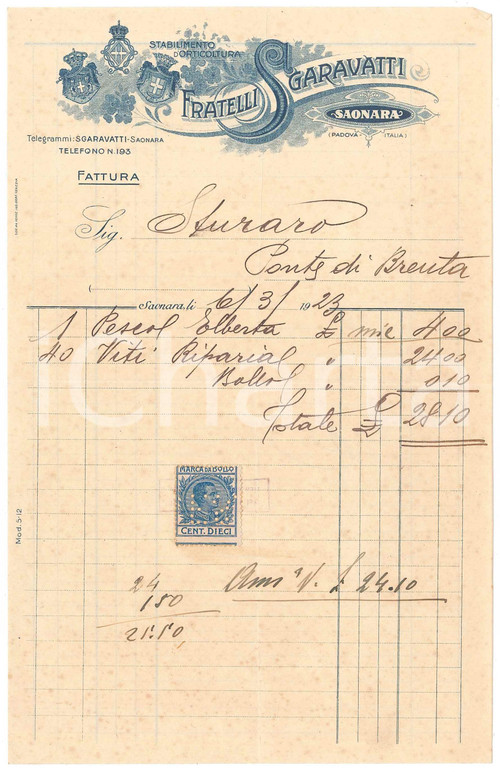 STABILIMENTO
D'ORTICOLTURA
FRATELLI SGARAVATTI
SAONARA
(PADOVA - ITALIA)
Telegrammi: SGARAVATTI-SAONARA
TELEFONO N. 193
FATTURA
Sig. Sturaro
Ponte di Brenta
Saonara, li 6/3/1923
1 Pesco Elberta £ mie 4.00
40 Viti Riparia " 24.00
Bollo " 0.10
Totale £ 28.10
MARCA DA BOLLO
CENT. DIECI
24
1.50
25.50
£ 24.10
Mod. 5-12
iCharta